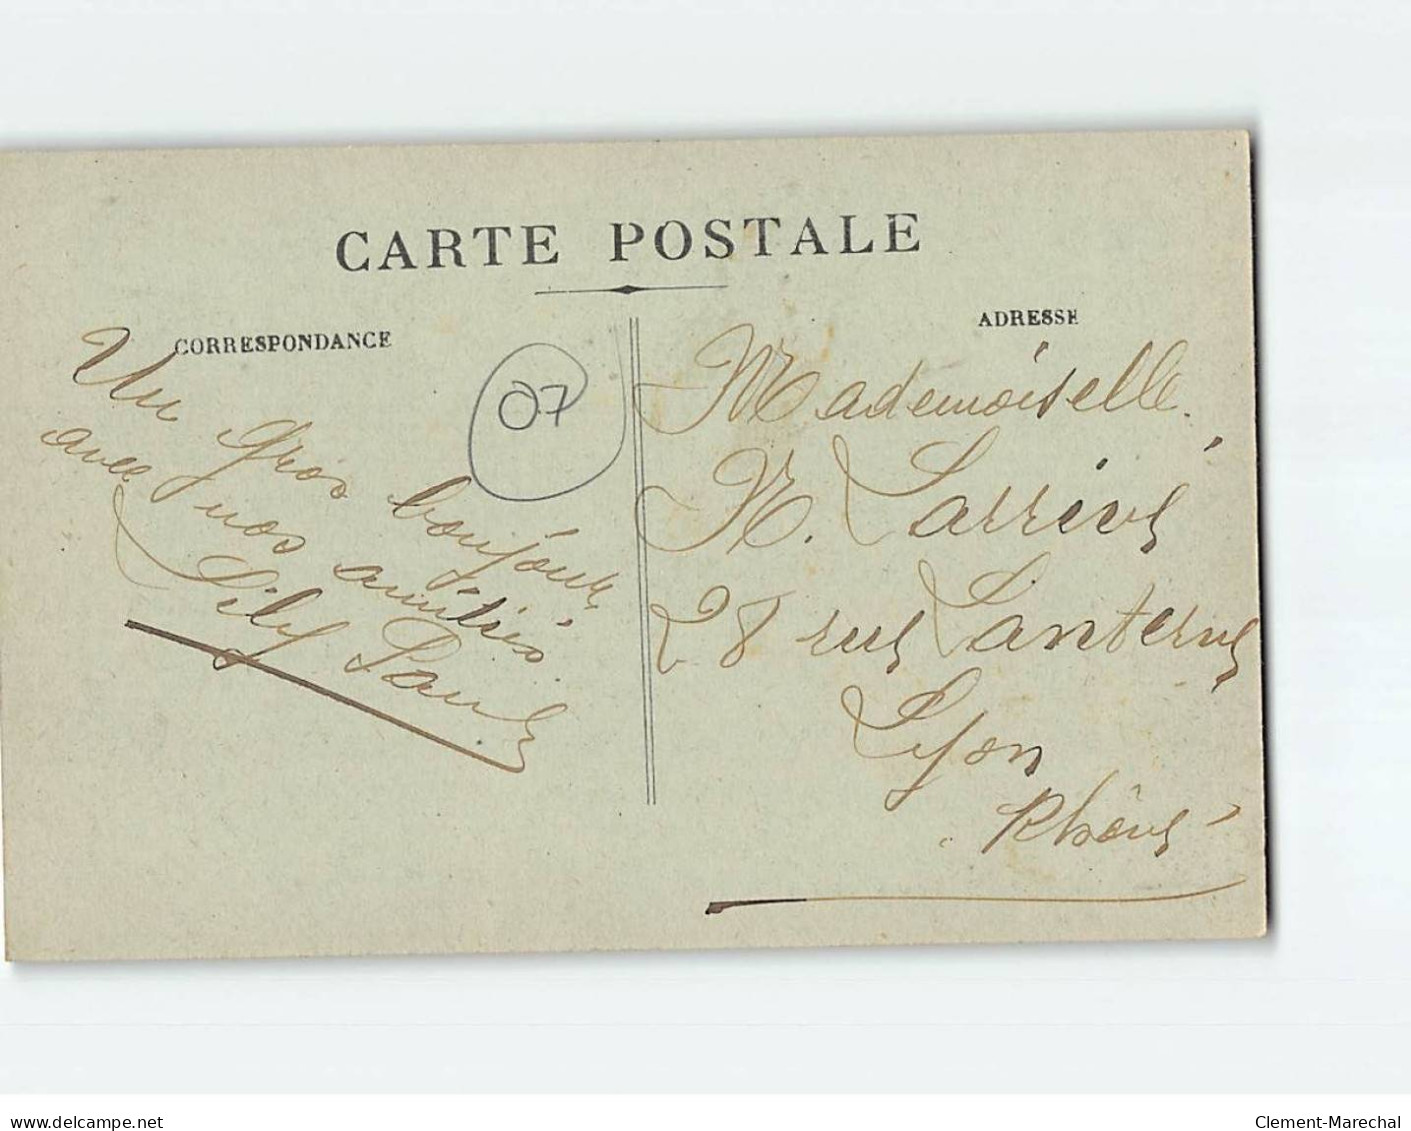 CARTE POSTALE
CORRESPONDANCE
Un gros bonjour
avec nos amitiés
Lily Paul
07
ADRESSE
Mademoiselle
M. Larrivé
28 rue Lanterne
Lyon
Rhône
www.delcampe.net
Clement-Marechal